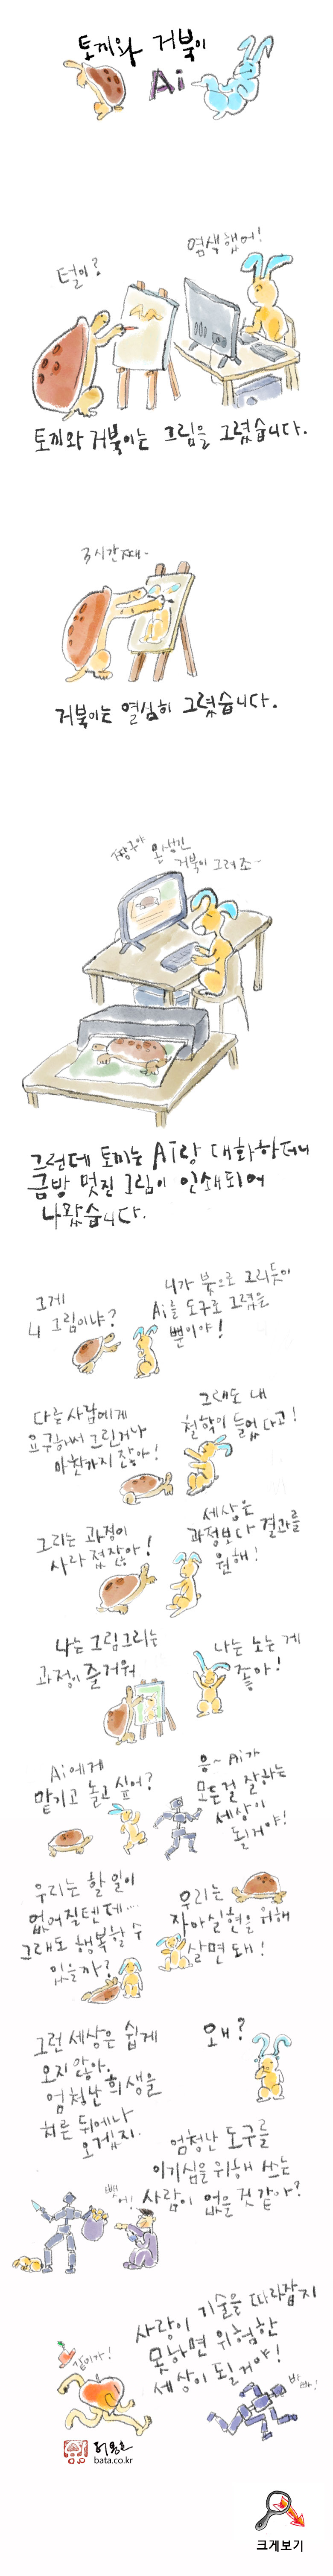 토끼와 거북이
Ai
염색했어!
털이?
토끼와 거북이는 그림을 그렸습니다.
3시간째~
거북이는 열심히 그렸습니다.
짱구야 온생긴
거북이 그려줘~
그런데 토끼는 Ai랑 대화하더니
금방 멋진 그림이 인쇄되어
나왔습니다.
그게
니 그림이냐?
니가 붓으로 그리듯이
Ai를 도구로 그렸을
뿐이야!
다른 사람에게
요구해서 그린거나
마찬가지 잖아!
그래도 내
철학이 들었다고!
그리는 과정이
사라졌잖아!
세상은
과정보다 결과를
원해!
나는 그림그리는
과정이 즐거워
나는 노는 게
좋아!
Ai에게
맡기고 놀고 싶어?
응~ Ai가
모든걸 잘하는
세상이
될거야!
우리는 할 일이
없어질텐데...
그래도 행복할 수
있을까?
우리는
자아실현을 위해
살면 돼!
그런 세상은 쉽게
오지 않아.
엄청난 희생을
치른 뒤에나
오겠지.
왜?
엄청난 도구를
이기심을 위해 쓰는
사람이 없을 것 같아?
뺏어!
사랑이 기술을 따라잡지
못하면 위험한
세상이 될거야!
같이가!
바빠!
bata.co.kr
크게보기